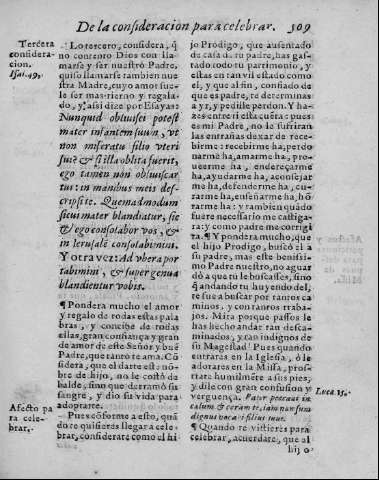 De la consideracion para celebrar. 309
Tercera
consideracion.
Isai.49.
Lo tercero, considera, q̃
no contento Dios con llamarse
y ser nuestro Padre,
quiso llamarse tambien nuestra
Madre, cuyo amor suele
ser mas tierno y regalado,
y assi dize por Esayas:
Nunquid obliuisci potest
mater infantem suum, vt
non misereatur filio vteri
sui? & si illa oblita fuerit,
ego tamen non obliuiscar
tui: in manibus meis descripsi
te. Quemadmodum
si cui mater blandiatur, sic
& ego consolabor vos, &
in Ierusalẽ consolabimini.
Y otra vez: Ad vbera portabimini,
& super genua
blandientur vobis.
¶ Pondera mucho el amor
y regalo de todas estas palabras,
y concibe de todas
ellas, gran confiança y grande
amor de este Señor y buẽ
Padre, que tanto te ama. Cõsidera,
que el darte este nõbre
de hijo, no le costò de
balde, sino que derramò su
sangre, y dio su vida para
adoptarte.
Afecto para
celebrar.
¶ Pues cõforme a esto, quãdo
te quisieres llegar a celebrar,
considerate como el hijo
Prodigo, que ausentado
de casa de tu padre, has gastado
todo tu patrimonio, y
estas en tan vil estado como
el, y que al fin, confiado de
que es padre, te determinas
a yr, y pedille perdon. Y hazes
entre ti esta cuẽta: pues
es mi Padre, no le sufriran
las entrañas dexar de recebirme:
recebirme ha, perdonarme
ha, amarme ha, proueerme
ha, endereçarme
ha, ayudarme ha, aconsejarme
ha, defenderme ha, curarme
ha, enseñarme ha, hõrarme
ha: y tambien quãdo
fuere necessario me castigara:
y como padre me corrigira.
¶ Y pondera mucho, que
el hijo Prodigo, buscò el a
su padre, mas este benissimo
Padre nuestro, no aguardò
a que tu le buscasses, sino
q̃ andando tu huyendo del,
te fue a buscar por tantos caminos,
y con tantos trabajos.
Mira por que passos le
has hecho andar tan descaminados,
y tan indignos de
su Magestad! Pues quando
entrares en la Iglesia, ò le
adorares en la Missa, prostrate
humilmẽte a sus pies,
y dile con grãde confusion y
verguença. Pater peccaui in
cælum & coram te, iam non sum
dignus vocari filius tuus.
Luca 15.
¶ Quando te vistieres para
celebrar, acuerdate, que al
hijo